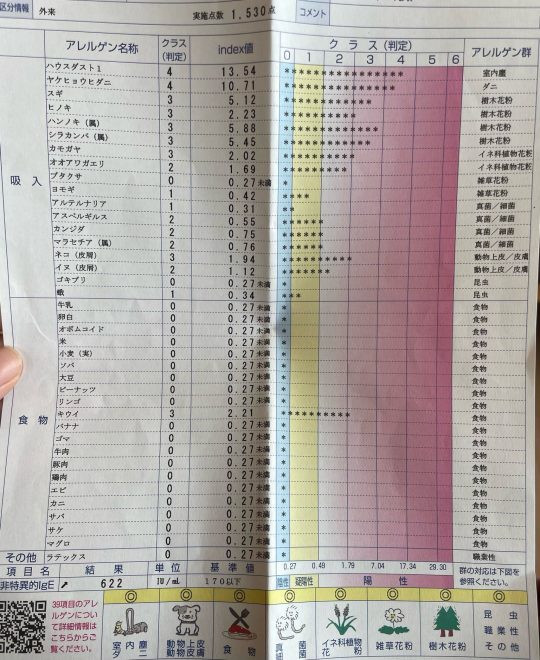 区分情報 外来 実施点数 1,530点 コメント
アレルゲン名称 クラス(判定) index値 クラス(判定) アレルゲン群
0 1 2 3 4 5 6
吸入
ハウスダスト1 4 13.54 ***************** 室内塵
ヤケヒョウヒダニ 4 10.71 **************** ダニ
スギ 3 5.12 樹木花粉
ヒノキ 3 2.23 樹木花粉
ハンノキ(属) 3 5.88 樹木花粉
シラカンバ(属) 3 5.45 樹木花粉
カモガヤ 3 2.02 イネ科植物花粉
オオアワガエリ 2 1.69 イネ科植物花粉
ブタクサ 0 0.27未満 * 雑草花粉
ヨモギ 1 0.42 雑草花粉
アルテルナリア 1 0.31 ** 真菌/細菌
アスペルギルス 2 0.55 真菌/細菌
カンジダ 2 0.75 真菌/細菌
マラセチア(属) 2 0.76 真菌/細菌
ネコ(皮屑) 3 1.94 動物上皮/皮膚
イヌ(皮屑) 2 1.12 動物上皮/皮膚
ゴキブリ 0 0.27未満 * 昆虫
蛾 1 0.34 *** 昆虫
食物
牛乳 0 0.27未満 * 食物
卵白 0 0.27未満 * 食物
オボムコイド 0 0.27未満 * 食物
米 0 0.27未満 * 食物
小麦(実) 0 0.27未満 * 食物
ソバ 0 0.27未満 * 食物
大豆 0 0.27未満 * 食物
ピーナッツ 0 0.27未満 * 食物
リンゴ 0 0.27未満 * 食物
キウイ 3 2.21 食物
バナナ 0 0.27未満 * 食物
ゴマ 0 0.27未満 * 食物
牛肉 0 0.27未満 * 食物
豚肉 0 0.27未満 * 食物
鶏肉 0 0.27未満 * 食物
エビ 0 0.27未満 * 食物
カニ 0 0.27未満 * 食物
サバ 0 0.27未満 * 食物
サケ 0 0.27未満 * 食物
マグロ 0 0.27未満 * 食物
その他 ラテックス 0 0.27未満 * 職業性
0.27 0.49 1.79 7.04 17.34 29.30
項目名 結果 単位 基準値 陰性 疑陽性 陽性 群の対応は下図を参照ください。
非特異的IgE 622 IU/mL 170以下
39項目のアレルゲンについて詳細情報はこちらからご覧ください。
室内塵 ダニ
動物上皮 動物皮膚
食物
真菌 細菌
イネ科植物花粉
雑草花粉
樹木花粉
昆虫 職業性 その他